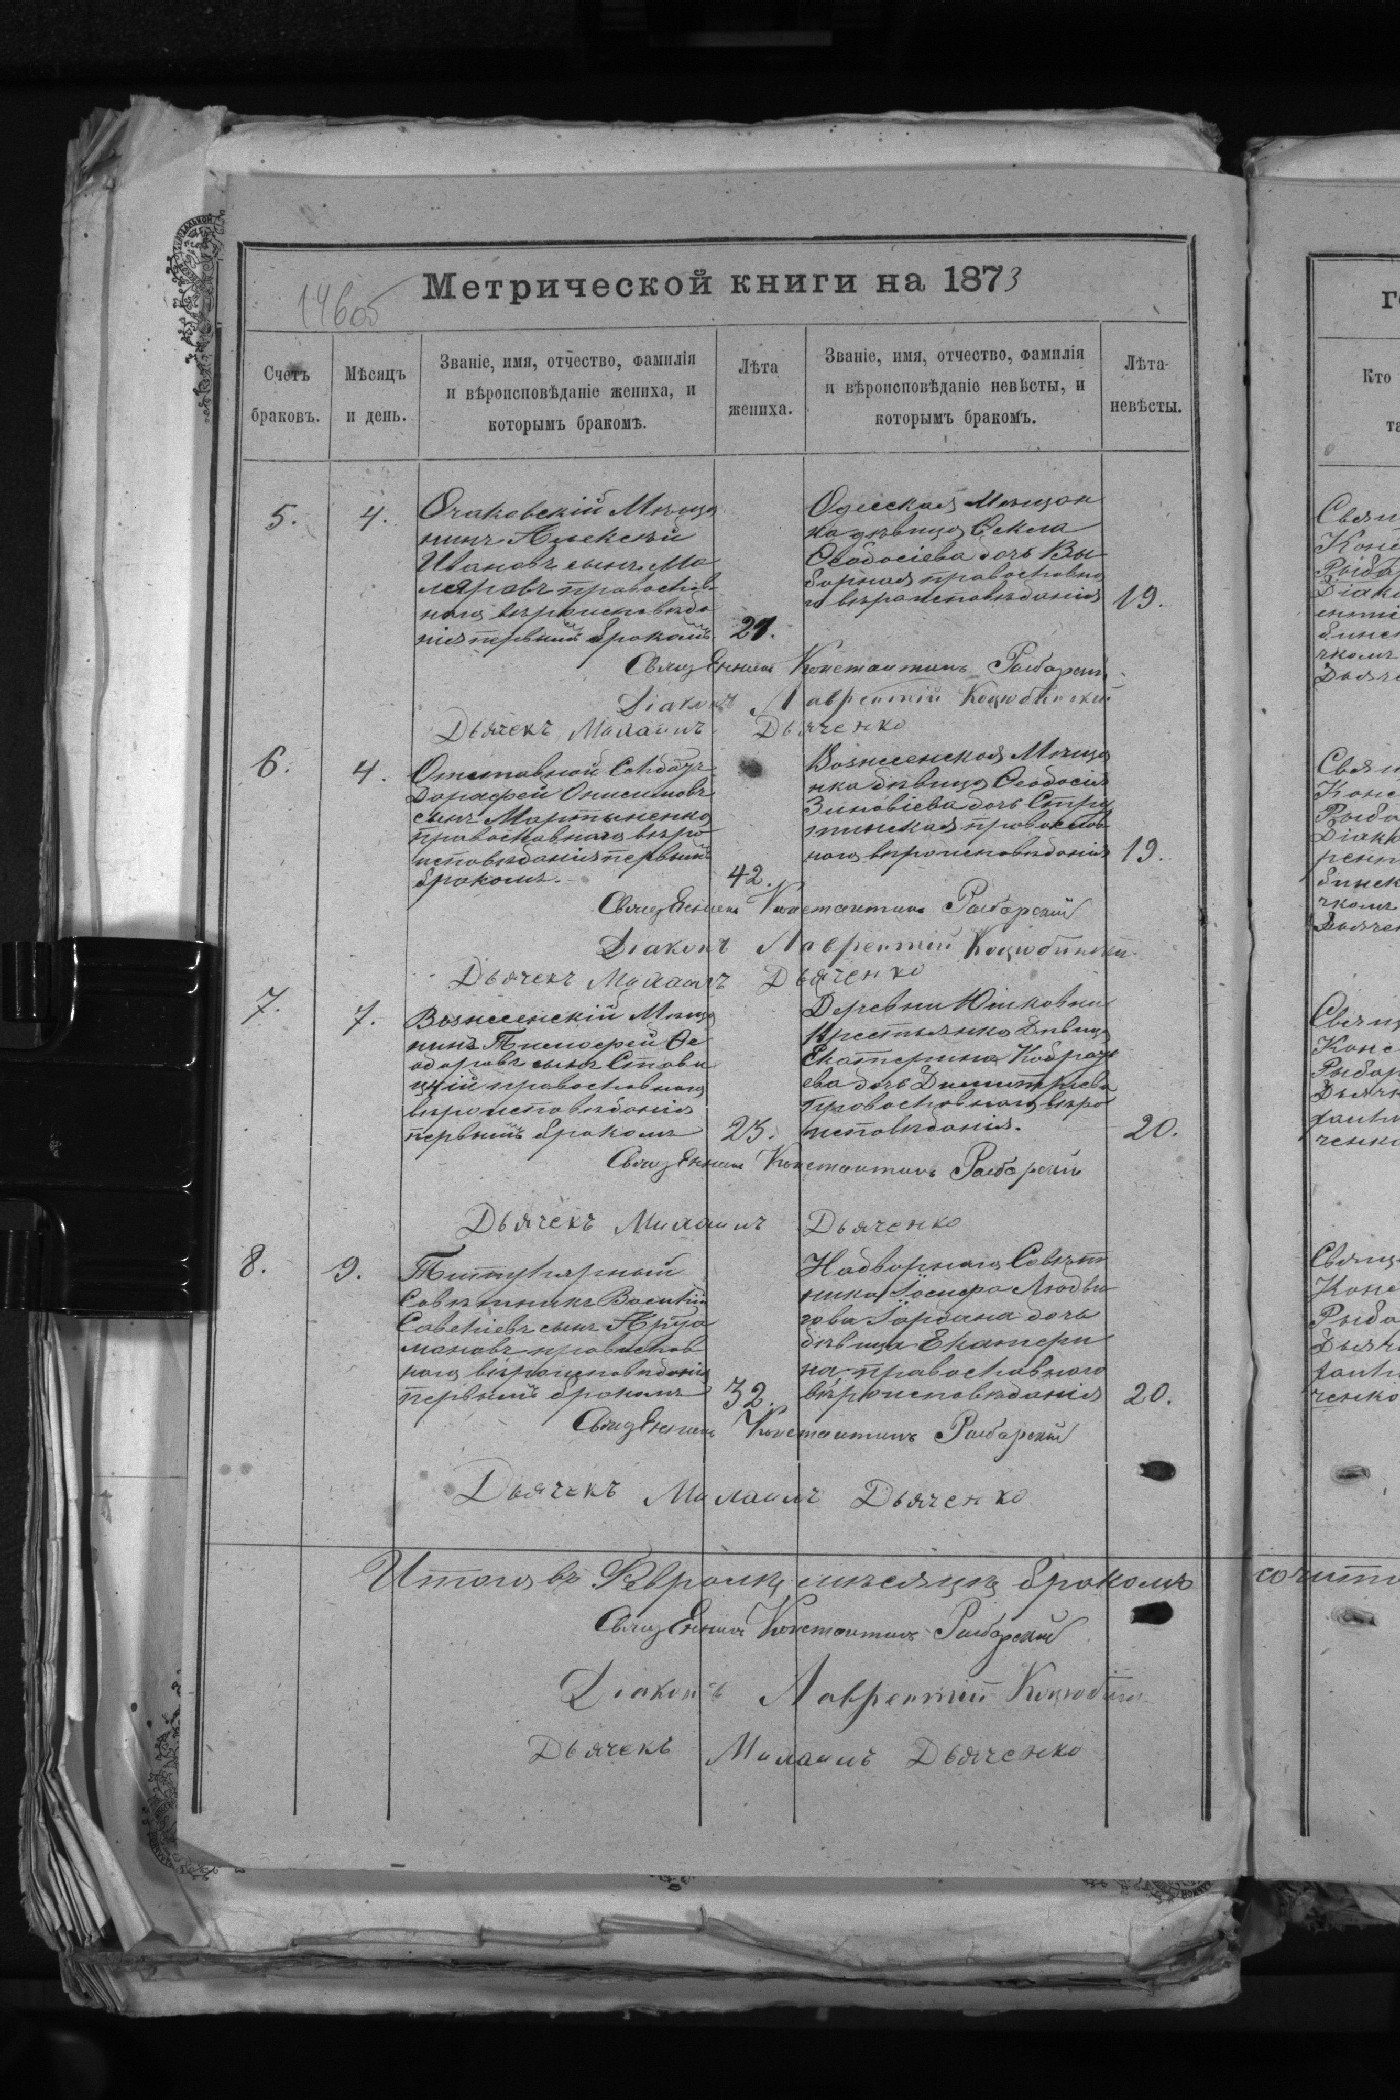 Метрической книги на 1873
Счетъ браковъ.
Мѣсяцъ и день.
Званіе, имя, отчество, фамилія
и вѣроисповѣданіе жениха, и
которымъ бракомъ.
Лѣта жениха.
Званіе, имя, отчество, фамилія
и вѣроисповѣданіе невѣсты, и
которымъ бракомъ.
Лѣта невѣсты.
5.
4.
Очаковскій Мѣща
нинъ Алексѣй
Ивановъ сынъ Ма
ляровъ православ
наго вѣроисповѣда
нія первымъ бракомъ
21.
Одесская Мѣщан
ка дѣвица Ѳекла
Ѳеодосіева дочь Вы
борная православна
го вѣроисповѣданія
19.
Священникъ Константинъ Рыбарскій
Діаконъ Лаврентій Коцюбинскій
Дьячекъ Михаилъ Дьяченко
6.
4.
Отставной Солдатъ
Дорофей Онисимовъ
сынъ Мартыненко
православнаго вѣро
исповѣданія первымъ
бракомъ.
42.
Вознесенская Мѣща
нка дѣвица Ѳеодосія
Зиновіева дочь
православ
наго вѣроисповѣданія
19.
Священникъ Константинъ Рыбарскій
Діаконъ Лаврентій Коцюбинскій
Дьячекъ Михаилъ Дьяченко
7.
7.
Вознесенскій Мѣща
нинъ Тимофей Ѳе
одоровъ сынъ Стави
цкій православнаго
вѣроисповѣданія
первымъ бракомъ
23.
Деревни
Крестьянка Дѣвица
Екатерина
дочь Димитріева
Православнаго вѣро
исповѣданія.
20.
Священникъ Константинъ Рыбарскій
Дьячекъ Михаилъ Дьяченко
8.
9.
Титулярный
Совѣтникъ Василій
Савеліевъ сынъ
православ
наго вѣроисповѣданія
первымъ бракомъ
32.
Надворнаго Совѣт
ника Іосифа Людви
гова Іордана дочь
дѣвица Екатери
на православнаго
вѣроисповѣданія
20.
Священникъ Константинъ Рыбарскій
Дьячекъ Михаилъ Дьяченко
Итого въ Февралѣ мѣсяцѣ бракомъ сочита
Священникъ Константинъ Рыбарскій
Діаконъ Лаврентій
Дьячекъ Михаилъ Дьяченко